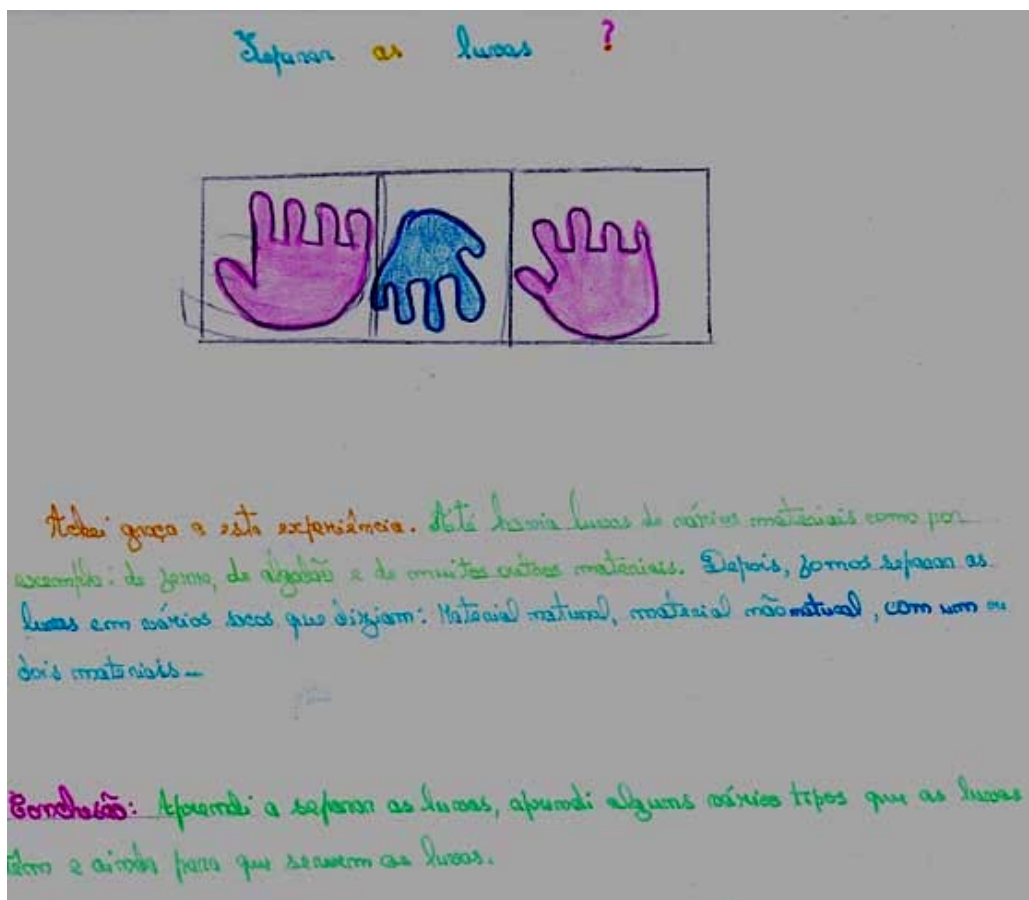 Separar as luvas ?
Achei graça a esta experiência. Até havia luvas de vários materiais como por
exemplo: de forno, de algodão e de muitos outros materiais. Depois, fomos separar as
luvas em vários sacos que diziam: Material natural, material não natural, com um ou
dois materiais...
Conclusão: Aprendi a separar as luvas, aprendi alguns vários tipos que as luvas
têm e ainda para que servem as luvas.